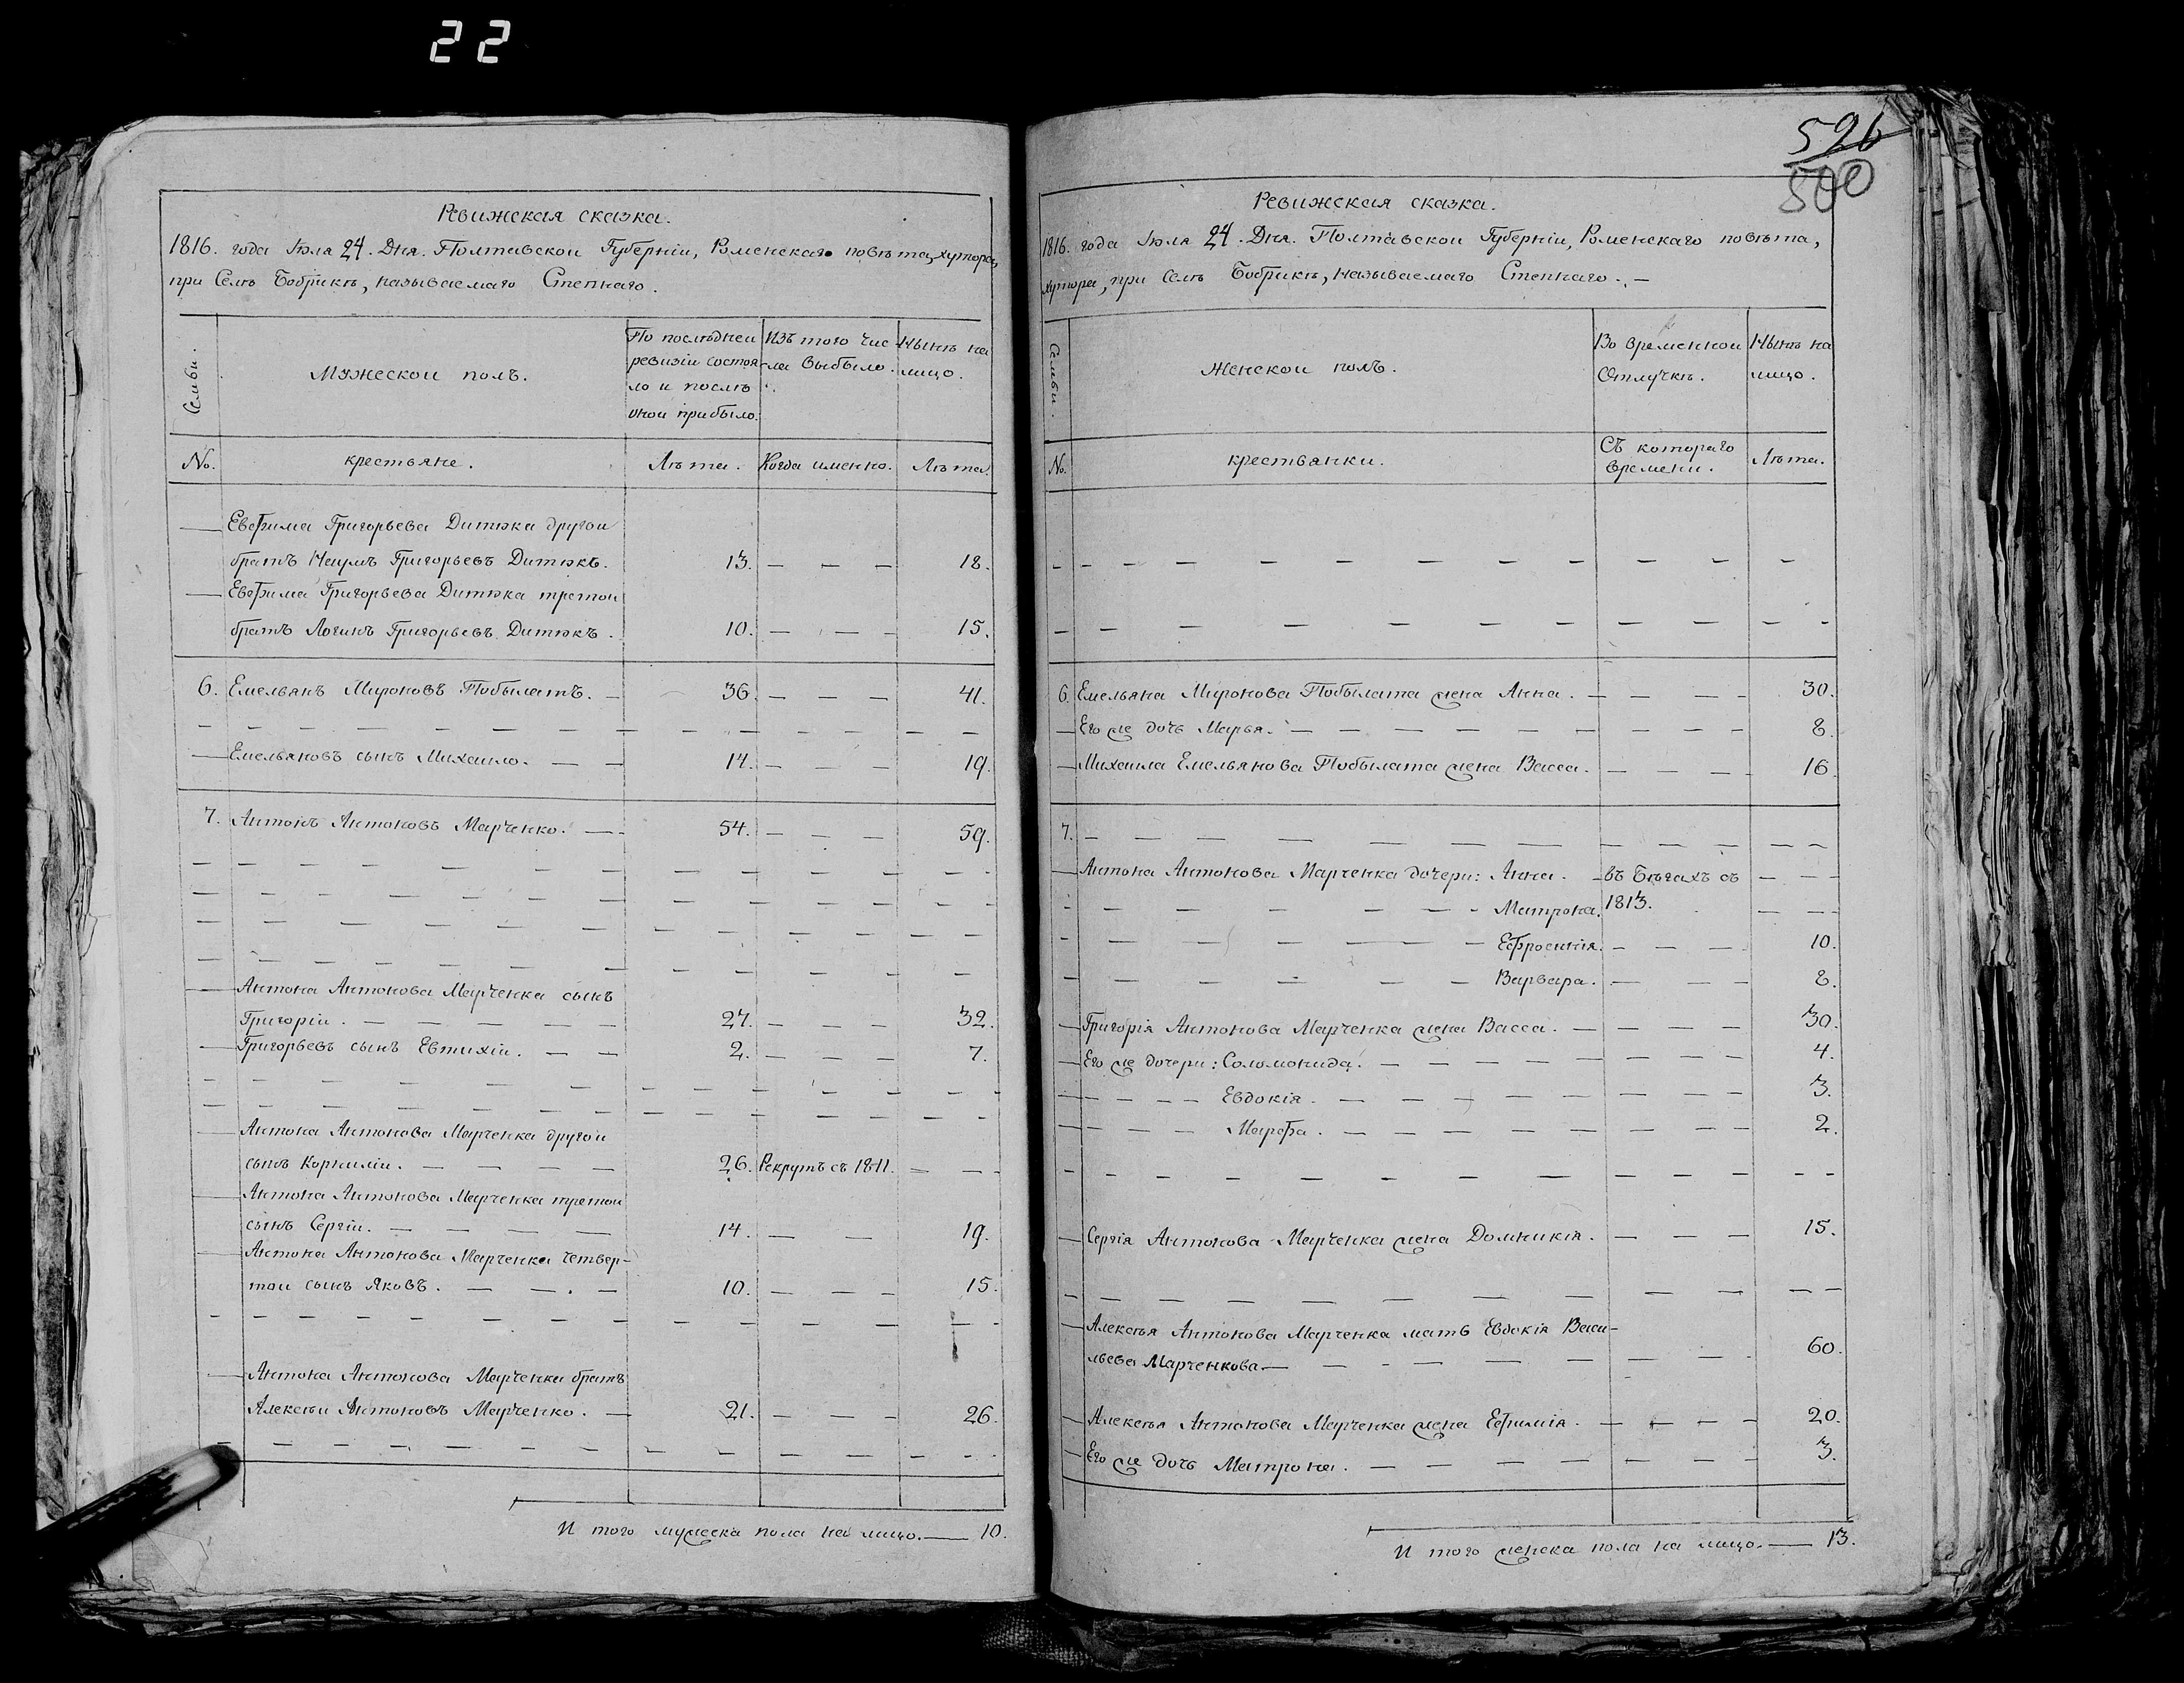 22
Ревижская сказка.
1816. года Июля 24. Дня. Полтавскои Губерніи, Роменскаго повѣта, хутора,
при Селѣ Бобрикѣ, называемаго Степнаго.
Семьи.
Мужескои полъ.
По послѣднеи
ревизіи состоя-
ло и послѣ
онои прибыло.
Изъ того чис-
ла выбыло.
Нынѣ на
лицо.
№.
крестьяне.
Лѣта.
Когда именно.
Лѣта.
Евфима Григорьева Дитюка другои
братъ Наумъ Григорьевъ Дитюкъ. 13. — — — 18.
Евфима Григорьева Дитюка третои
братъ Логинъ Григорьевъ Дитюкъ. 10. — — — 15.
6. Емельянъ Мироновъ Побылатъ. — 36. — — — 41.
Емельяновъ сынъ Михаило. — — 14. — — — 19.
7. Антонъ Антоновъ Марченко. — 54. — — — 59.
Антона Антонова Марченка сынъ
Григоріи. — — — — — 27. — — — 32.
Григорьевъ сынъ Евтихіи. — — 2. — — — 7.
Антона Антонова Марченка другои
сынъ Корниліи. — — — — 26. Рекрутъ съ 1811. — — —
Антона Антонова Марченка третои
сынъ Сергіи. — — — — 14. — — 19.
Антона Антонова Марченка четвер-
тои сынъ Яковъ. — — — 10. — — — 15.
Антона Антонова Марченка братъ
Алексѣи Антоновъ Марченко. — 21. — — — 26.
И того мужеска пола на лицо. — 10.
596
500
Ревижская сказка.
1816. года Июля 24. Дня. Полтавскои Губерніи, Роменскаго повѣта,
хутора, при Селѣ Бобрикѣ, называемаго Степнаго. —
Семьи.
Женскои полъ.
Во временнои
Отлучкѣ.
Нынѣ на
лицо.
№.
крестьянки.
Съ котораго
времени.
Лѣта.
6. Емельяна Миронова Побылата жена Анна. — — — — 30.
Его же дочь Марья. — — — — — — — — 8.
Михаила Емельянова Побылата жена Васса. — — — — 16.
7. — — — — — — — — — — — —
Антона Антонова Марченка дочери: Анна. — въ Бѣгахъ съ — — —
Матрона. 1813. — — —
Ефросинія. — — — 10.
Варвара. — — — 8.
Григорія Антонова Марченка жена Васса. — — — — 30.
Его же дочери: Соломонида. — — — — — — — 4.
Евдокія. — — — — — — — 3.
Марфа. — — — — — — — 2.
Сергія Антонова Марченка жена Домникія. — — — 15.
Алексѣя Антонова Марченка мать Евдокія Васи-
льева Марченкова — — — — — — — — 60.
Алексѣя Антонова Марченка жена Ефимія. — — — — 20.
Его же дочь Матрона. — — — — — — — — 3.
И того женска пола на лицо. — 13.